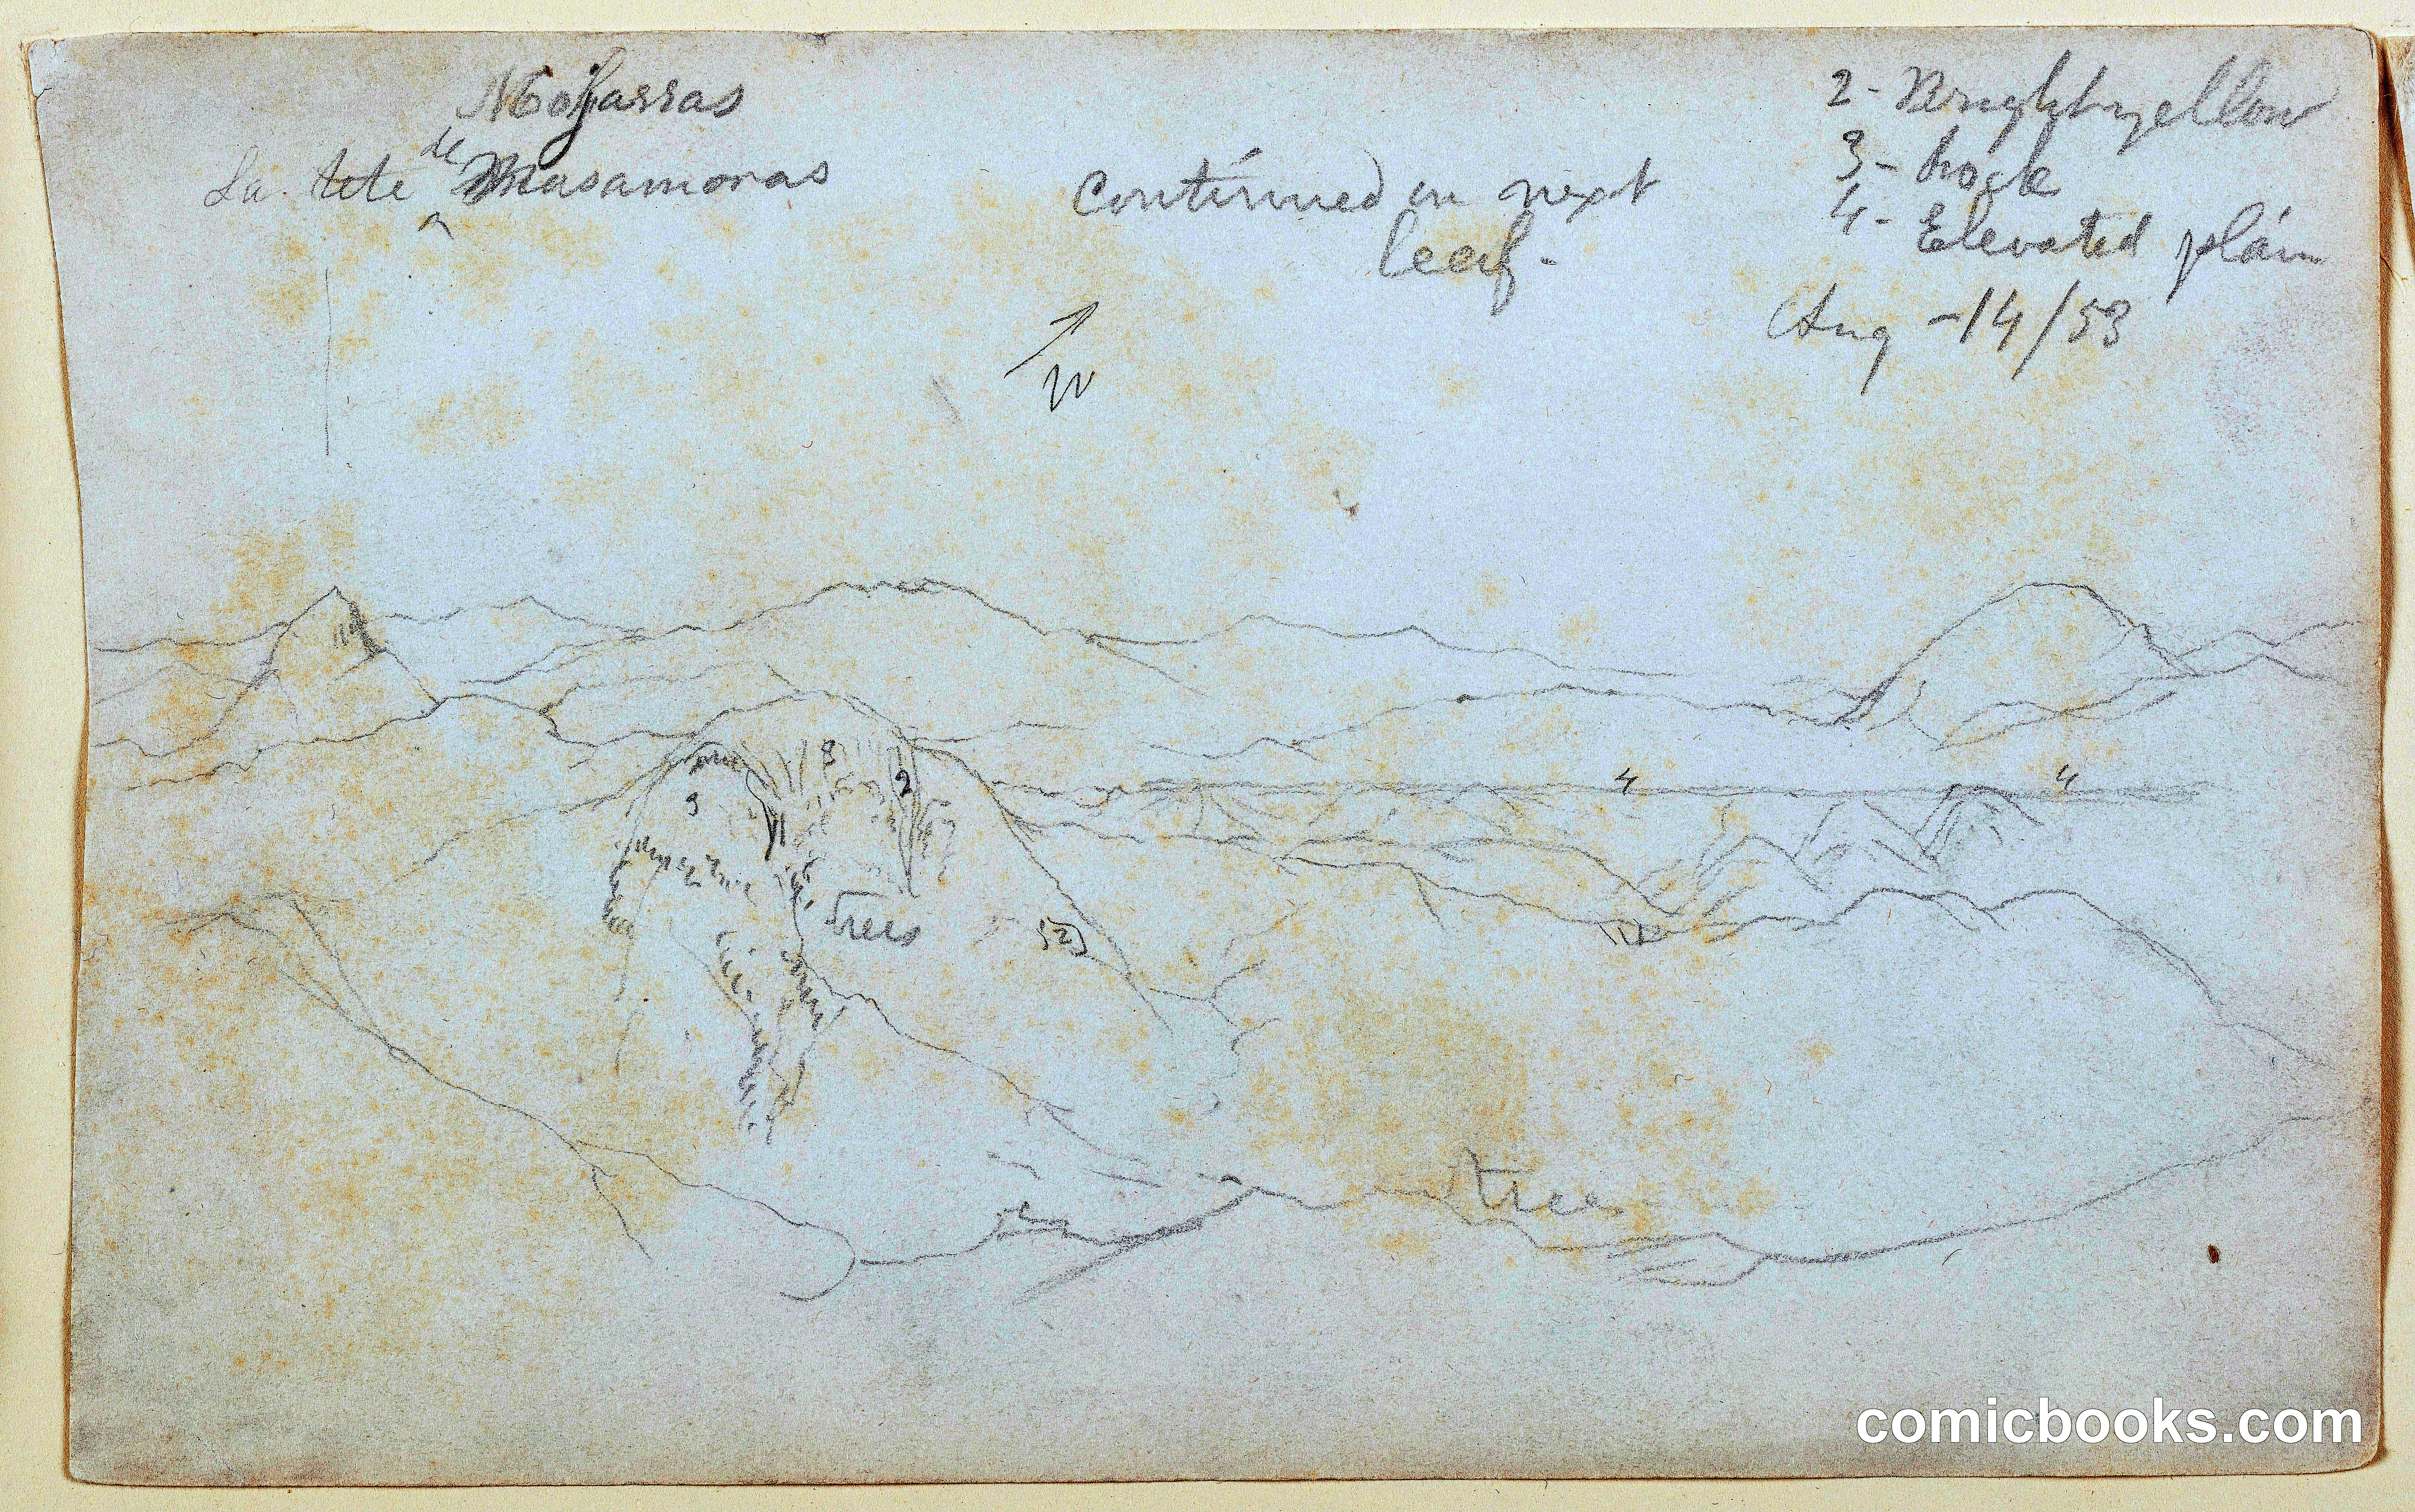 La tete de Masamoras
Continued on next
leaf-
2 - Bright yellow
3 - hock
4 - Elevated plain
Aug - 14/53
3
2
3
4
4
Trees
52
trees
comicbooks.com